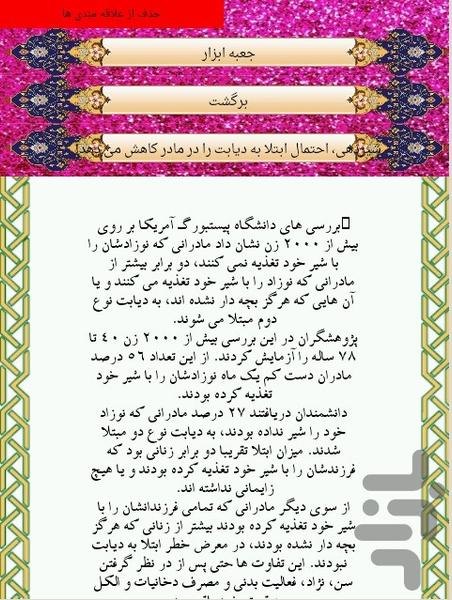 حذف از علاقه مندی ها
جعبه ابزار
برگشت
شیردهی، احتمال ابتلا به دیابت را در مادر کاهش می دهد
بررسی های دانشگاه پیستبورگ آمریکا بر روی
بیش از ۲۰۰۰ زن نشان داد مادرانی که نوزادشان را
با شیر خود تغذیه نمی کنند، دو برابر بیشتر از
مادرانی که نوزاد را با شیر خود تغذیه می کنند و یا
آن هایی که هرگز بچه دار نشده اند، به دیابت نوع
دوم مبتلا می شوند.
پژوهشگران در این بررسی بیش از ۲۰۰۰ زن ۴۰ تا
۷۸ ساله را آزمایش کردند. از این تعداد ۵۶ درصد
مادران دست کم یک ماه نوزادشان را با شیر خود
تغذیه کرده بودند.
دانشمندان دریافتند ۲۷ درصد مادرانی که نوزاد
خود را شیر نداده بودند، به دیابت نوع دو مبتلا
شدند. میزان ابتلا تقریبا دو برابر زنانی بود که
فرزندشان را با شیر خود تغذیه کرده بودند و یا هیچ
زایمانی نداشته اند.
از سوی دیگر مادرانی که تمامی فرزندانشان را با
شیر خود تغذیه کرده بودند بیشتر از زنانی که هرگز
بچه دار نشده بودند، در معرض خطر ابتلا به دیابت
نبودند. این تفاوت ها حتی پس از در نظر گرفتن
سن، نژاد، فعالیت بدنی و مصرف دخانیات و الکل
بازار